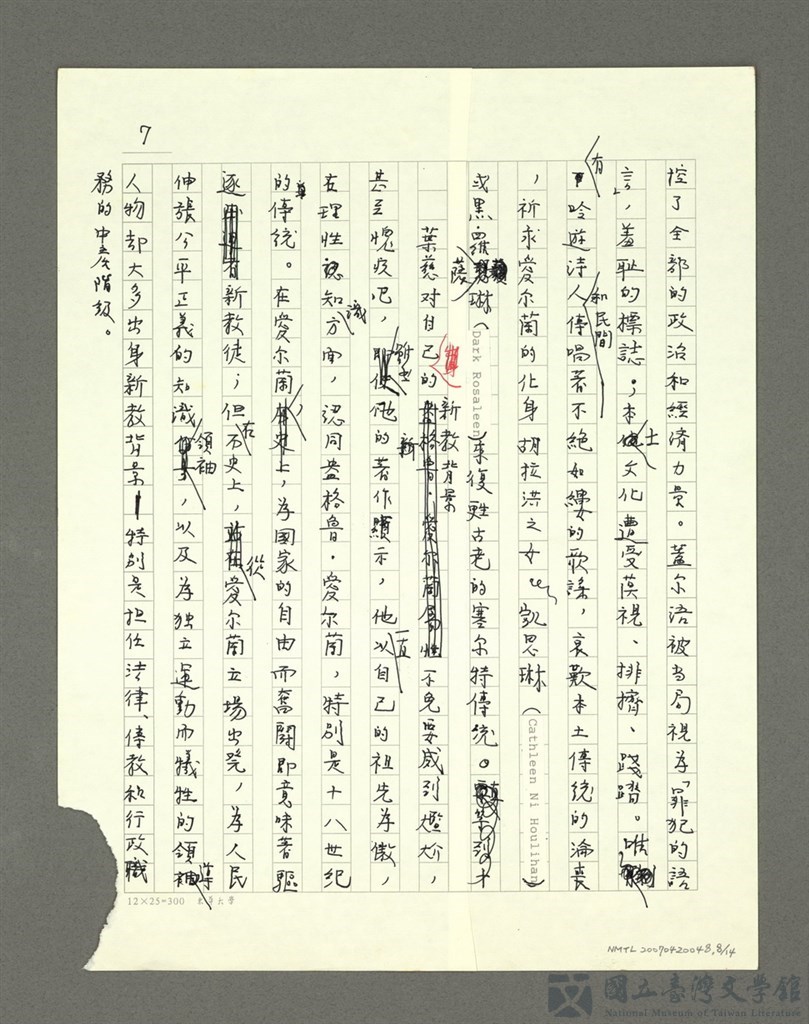 7
控了全部的政治和經濟力量。蓋尔语被当局視為「罪犯的語
言」,羞耻的標誌;本土文化遭受蔑視、排擠、踐踏。唯
有吟遊诗人和民間傳唱著不絕如縷的歌謠,哀歎本土傳統的淪喪
,祈求愛尔蘭的化身胡拉洪之女凱思琳(Cathleen Ni Houlihan)
或黑羅薩琳(Dark Rosaleen)來復甦古老的塞尔特傳統。
葉慈对自己的新教背景不免要感到尷尬,
甚至愧疚吧,他的著作顯示,他一直以自己的祖先為傲,
在理性認知方面,認同盎格魯·愛尔蘭,特別是十八世紀
的傳統。在愛尔蘭,為國家的自由而奮鬪即意味著驅
逐新教徒;但在史上,從愛尔蘭立場出発,為人民
伸張公平正義的知識領袖,以及為独立運動而犧牲的領導
人物却大多出身新教背景—特別是担任法律、傳教和行政職
務的中產階級。
12×25=300
NMTL 20070420048, 8/14
國立臺灣文學館
National Museum of Taiwan Literature